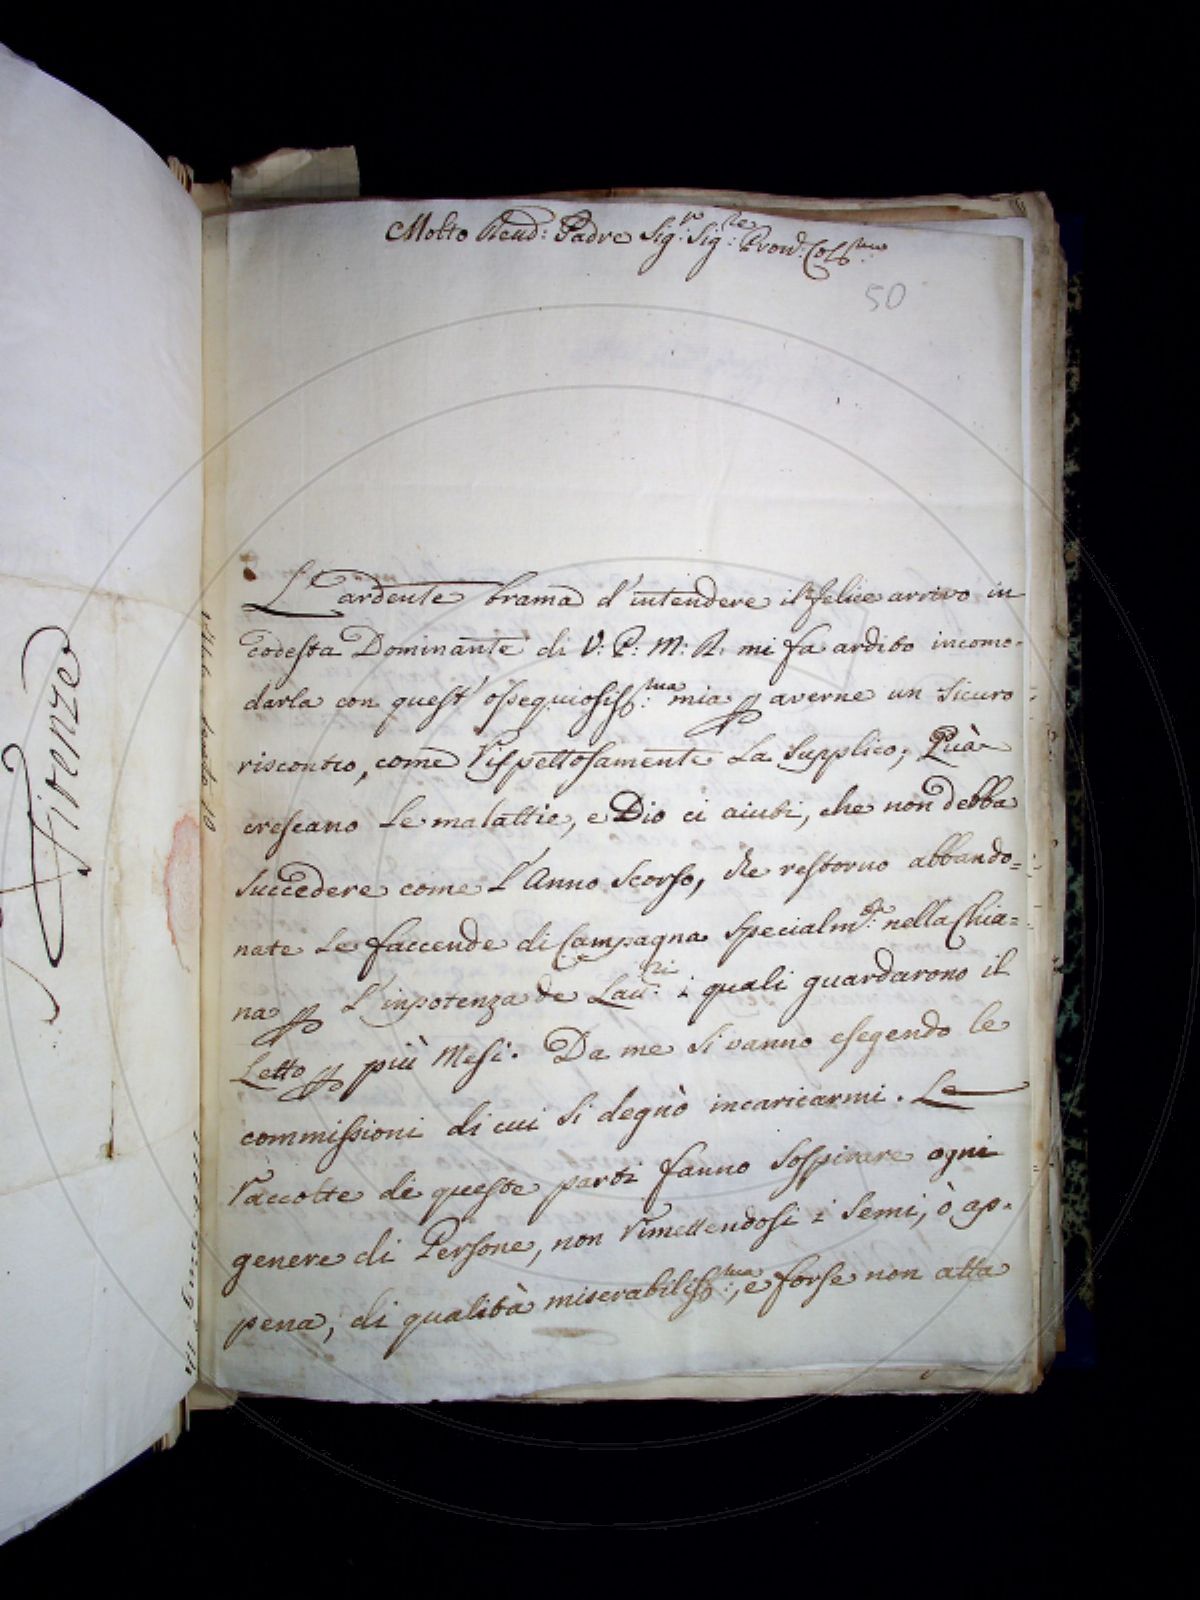 Firenze
Molto Reud: Padre Sig:r Sig:re Pron: Col:mo
50
L'ardente brama d'intendere il felice arrivo in
codesta Dominante di V: P: M: R: mi fa ardito incomo-
darla con quest' ossequiosiss:ma mia p averne un sicuro
riscontro, come rispettosamente La supplico; Quà
crescano Le malattie, e Dio ci aiuti, che non debba
succedere come L'Anno scorso, che restorno abbando=
nate Le faccende di Campagna specialm:te nella Chia=
na p L'inpotenza de Lau:ri i quali guardarono il
Letto p più Mesi. Da me si vanno esegendo le
commissioni di cui si degnò incaricarmi. Le
raccolte di queste parti fanno sospirare ogni
genere di Persone, non rimettendosi i semi, ò ap-
pena, di qualità miserabiliss:ma, e forse non atta